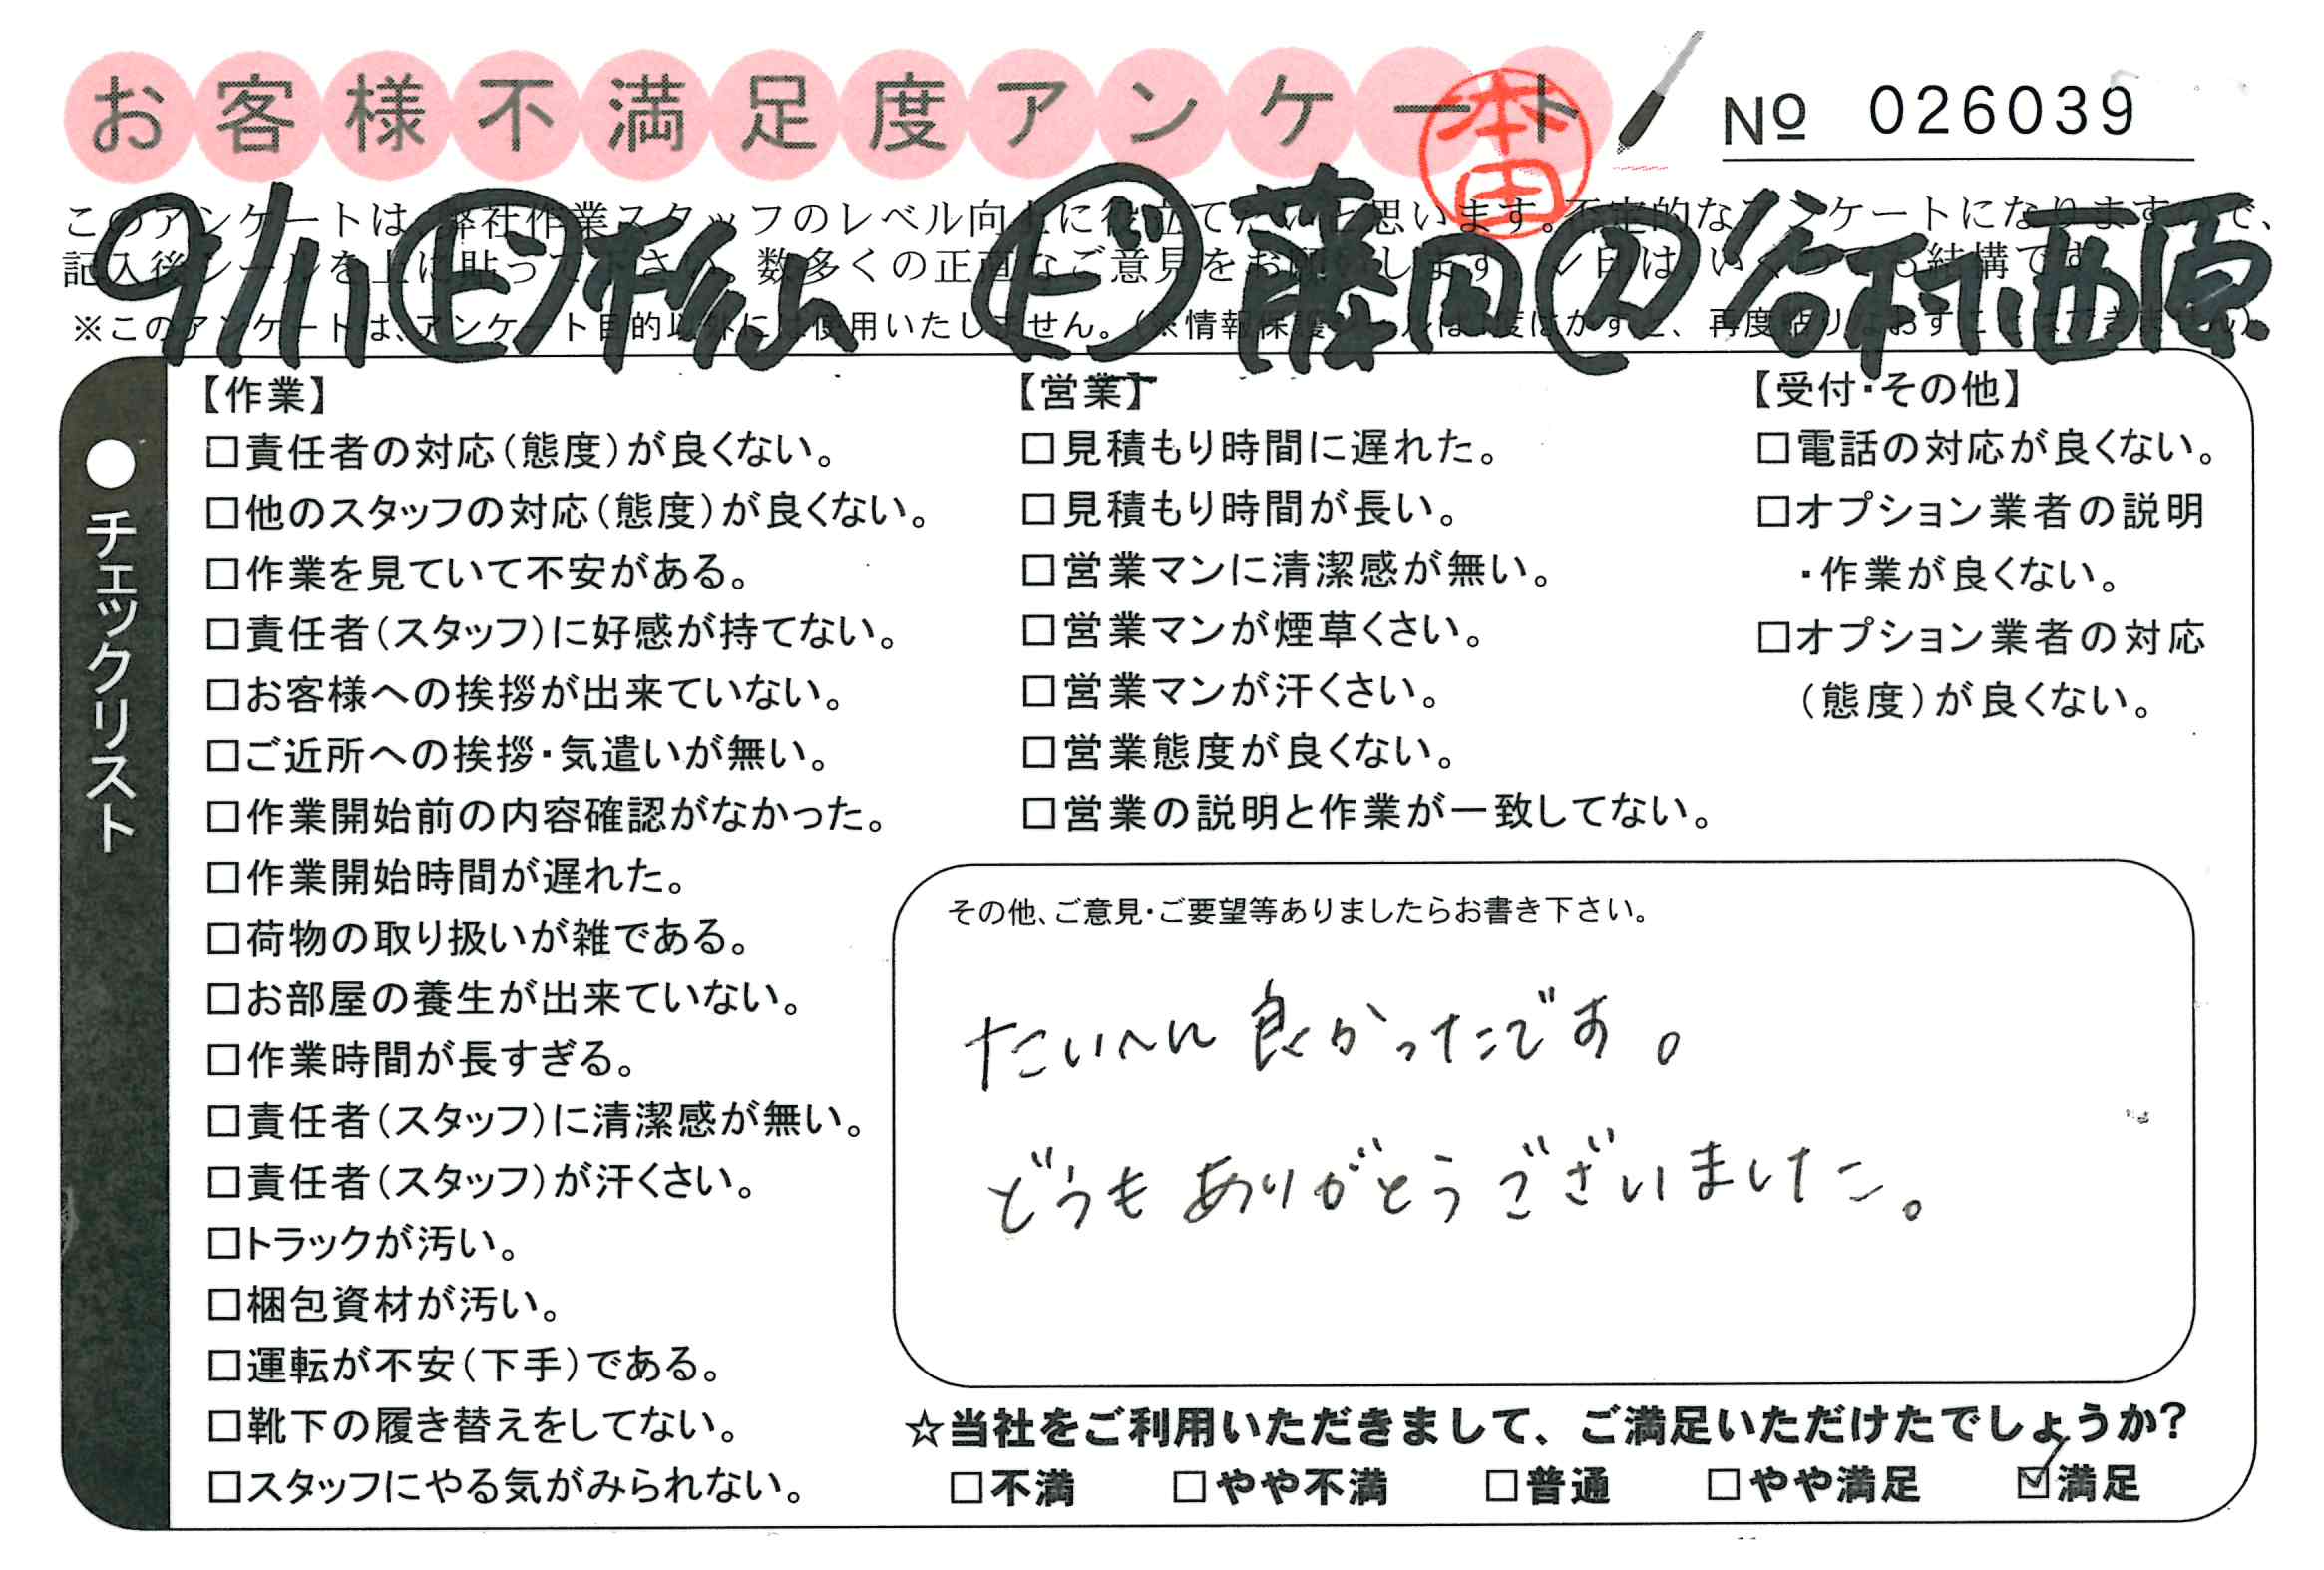 お客様不満足度アンケート
本田
№ 026039
9/11 ㋪杉山 藤田 ㋜谷村、西原
【作業】
□責任者の対応(態度)が良くない。
□他のスタッフの対応(態度)が良くない。
□作業を見ていて不安がある。
□責任者(スタッフ)に好感が持てない。
□お客様への挨拶が出来ていない。
□ご近所への挨拶・気遣いが無い。
□作業開始前の内容確認がなかった。
□作業開始時間が遅れた。
□荷物の取り扱いが雑である。
□お部屋の養生が出来ていない。
□作業時間が長すぎる。
□責任者(スタッフ)に清潔感が無い。
□責任者(スタッフ)が汗くさい。
□トラックが汚い。
□梱包資材が汚い。
□運転が不安(下手)である。
□靴下の履き替えをしてない。
□スタッフにやる気がみられない。
【営業】
□見積もり時間に遅れた。
□見積もり時間が長い。
□営業マンに清潔感が無い。
□営業マンが煙草くさい。
□営業マンが汗くさい。
□営業態度が良くない。
□営業の説明と作業が一致してない。
【受付・その他】
□電話の対応が良くない。
□オプション業者の説明
・作業が良くない。
□オプション業者の対応
(態度)が良くない。
●チェックリスト
その他、ご意見・ご要望等ありましたらお書き下さい。
たいへん良かったです。
どうもありがとうございました。
☆当社をご利用いただきまして、ご満足いただけたでしょうか?
□不満 □やや不満 □普通 □やや満足 ☑満足